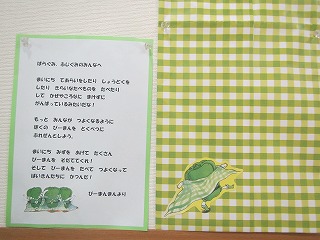 ばらぐみ、ふじぐみのみんなへ
まいにち てあらいをしたり しょうどくを
したり きらいなたべものを たべたり
して かぜやころなに まけずに
がんばっているみたいだな！
もっと みんなが つよくなるように
ぼくの ぴーまんを とくべつに
ぷれぜんとしよう。
まいにち みずを あげて たくさん
ぴーまんを そだててくれ！
そして ぴーまんを たべて つよくなって
ばいきんたちに かつんだ！
ぴーまんまんより